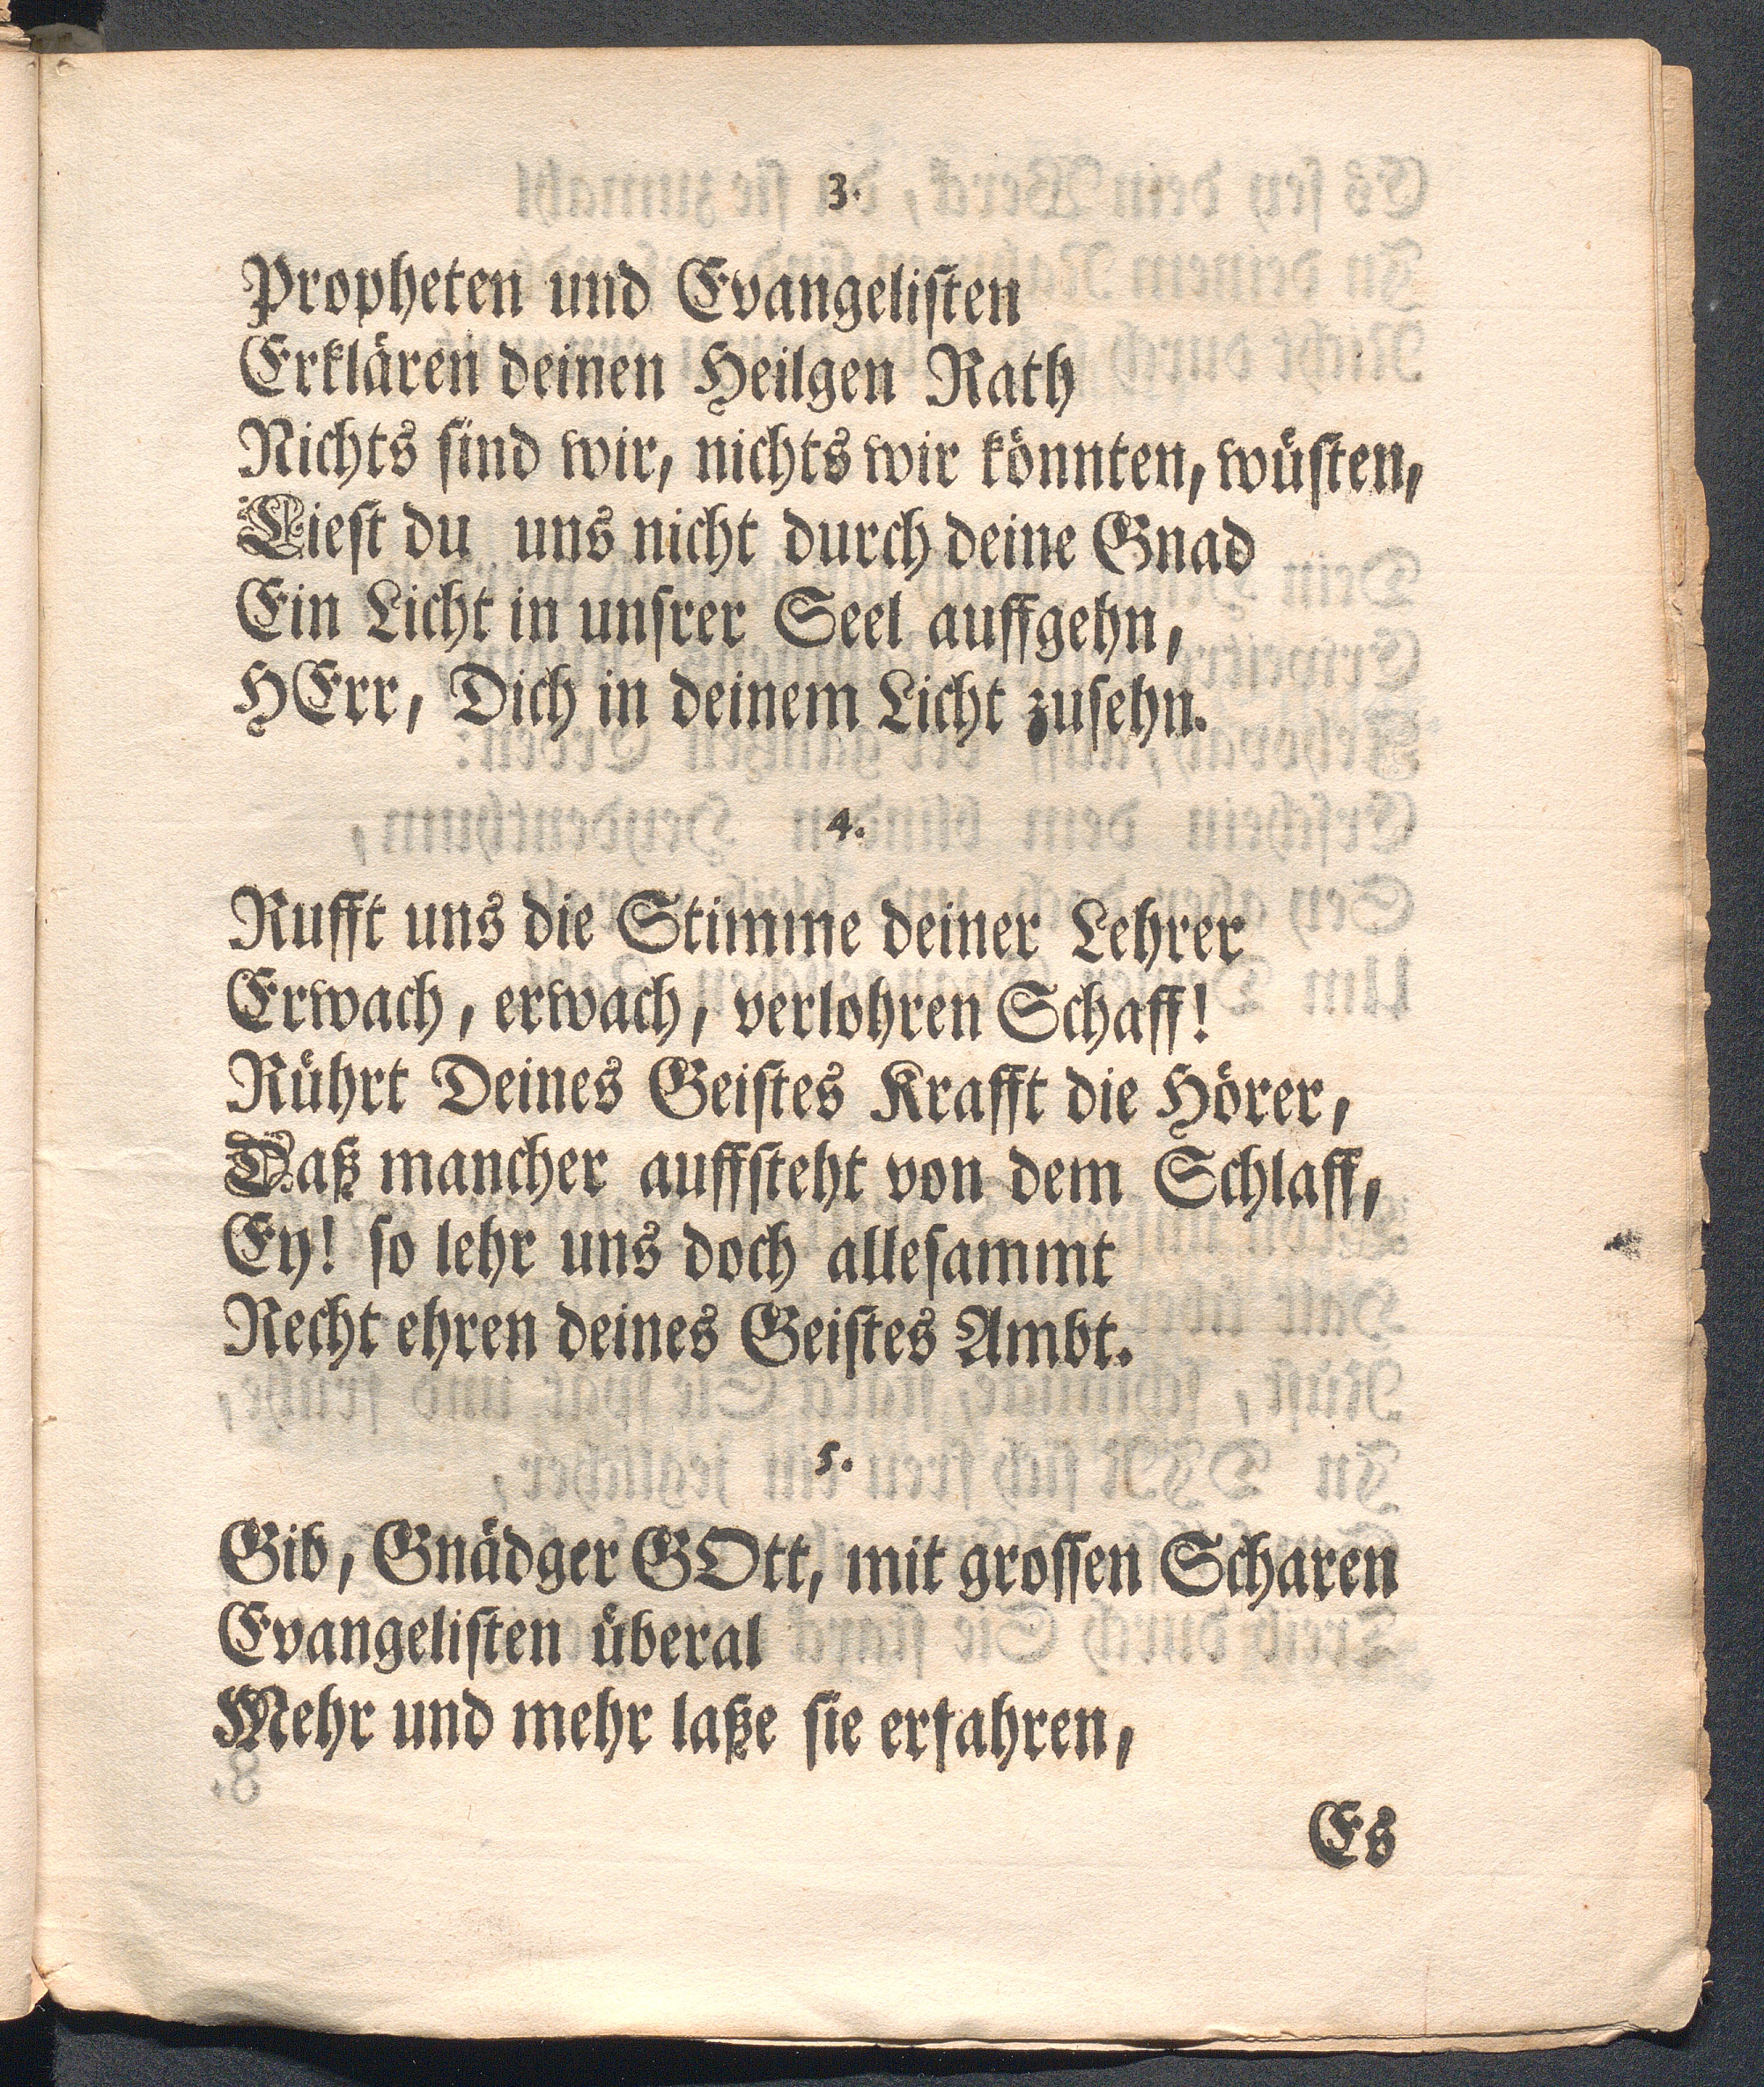 3.
Propheten und Evangelisten
Erklären deinen Heilgen Rath
Nichts sind wir, nichts wir könnten, wüsten,
Liest du uns nicht durch deine Gnad
Ein Licht in unsrer Seel auffgehn,
HErr, Dich in deinem Licht zusehn.
4.
Rufft uns die Stimme deiner Lehrer
Erwach, erwach, verlohren Schaff!
Rührt Deines Geistes Krafft die Hörer,
Daß mancher auffsteht von dem Schlaff,
Ey! so lehr uns doch allesammt
Recht ehren deines Geistes Ambt.
5.
Gib, Gnädger GOtt, mit grossen Scharen
Evangelisten überal
Mehr und mehr laße sie erfahren,
Es